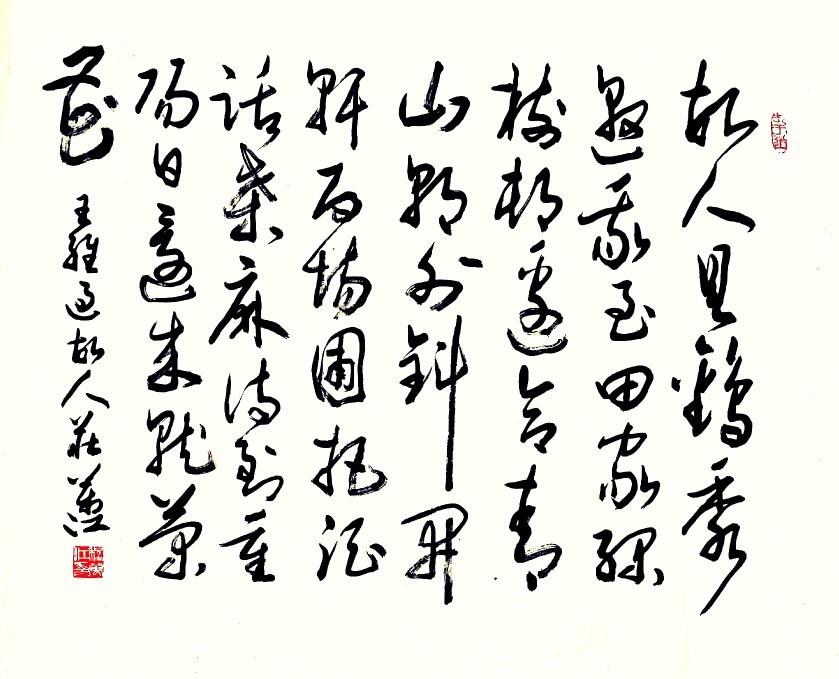 故人具鷄黍
邀我至田家綠
樹村邊合青
山郭外斜開
軒面場圃把酒
話桑麻待到重
陽日還來就菊
花
王維過故人莊